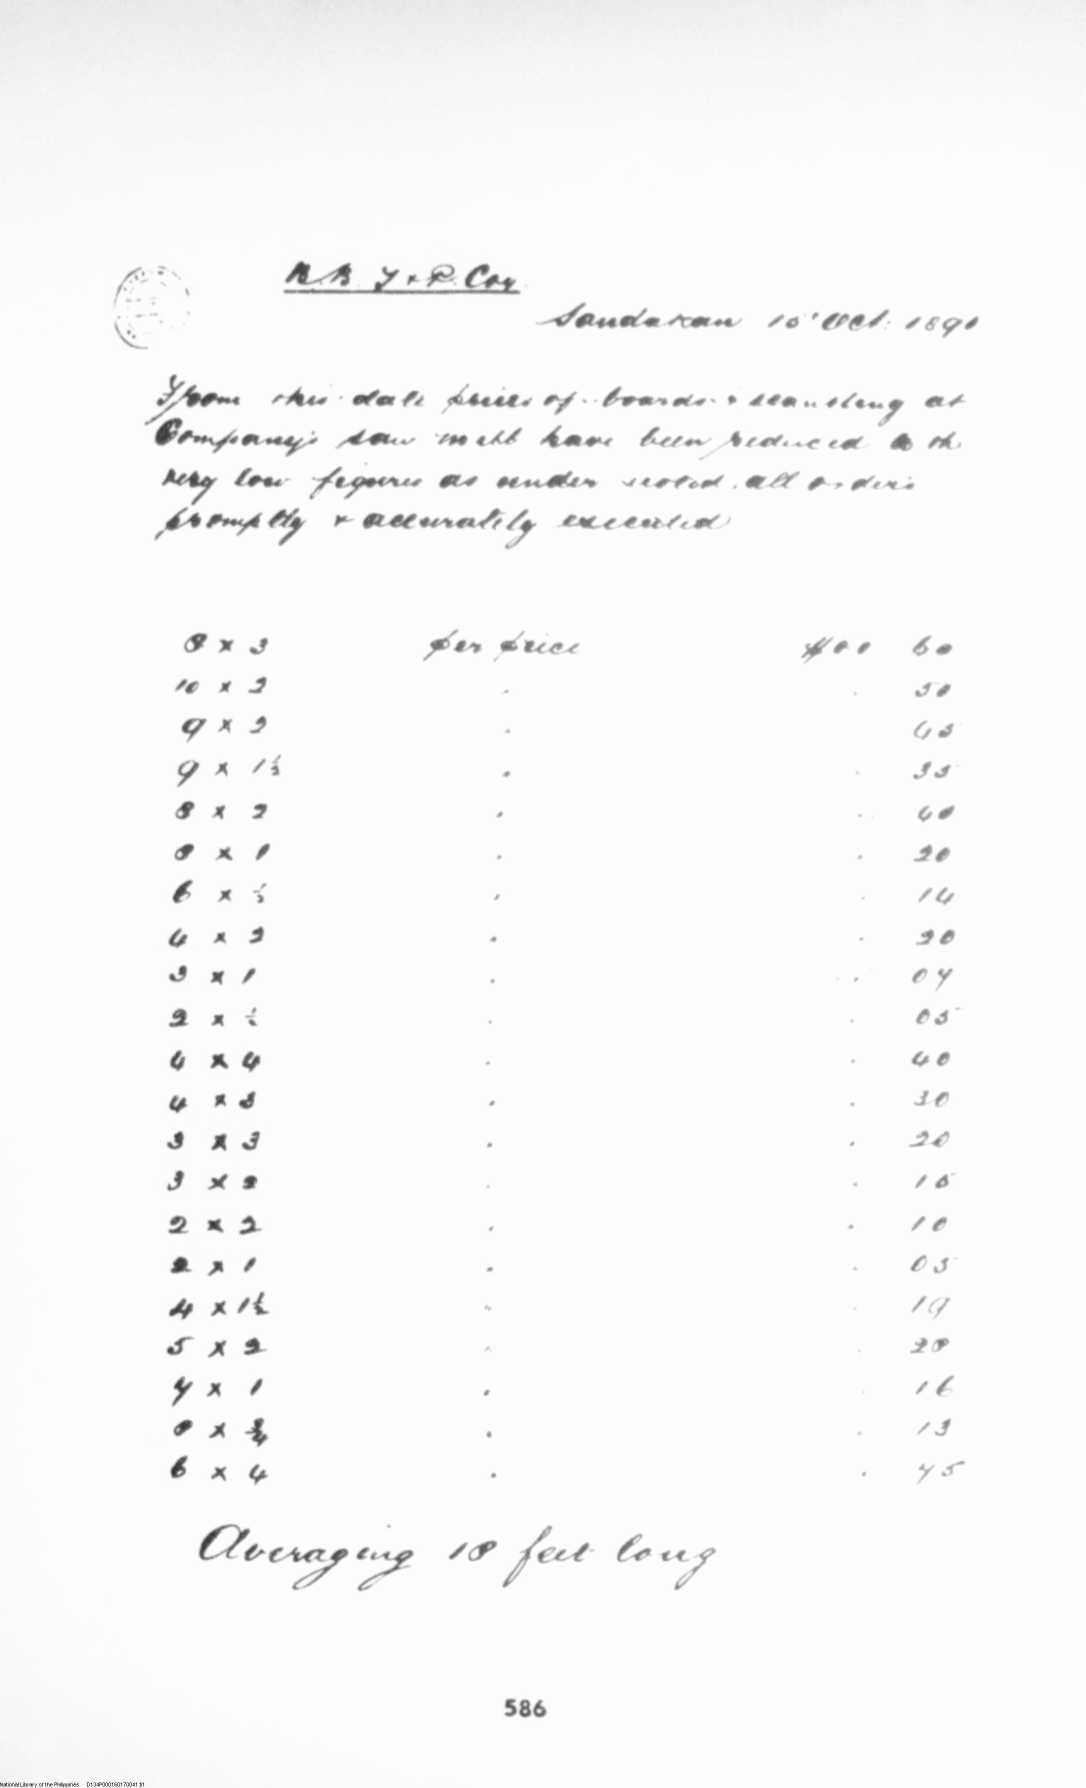 B. B. T & P. Coy
Sandakan 15' Oct: 1891
From this date prices of boards & scantling at
Company's saw mill have been reduced to the
very low figures as under noted. all orders
promptly & accurately executed
8 x 3 per price $00 60
10 x 2 " . 50
9 x 2 " 45
9 x 1½ " . 35
8 x 2 " . 40
8 x 1 " . 20
6 x ½ " . 14
4 x 2 " . 20
3 x 1 " . 07
2 x ½ " . 05
4 x 4 " . 40
4 x 3 " . 30
3 x 3 " . 20
3 x 2 " . 15
2 x 2 " . 10
2 x 1 " . 05
4 x 1½ " . 19
5 x 2 " . 28
7 x 1 " . 16
8 x ¾ " . 13
6 x 4 " . 75
Averaging 18 feet long
586
National Library of the Philippines D134P000160170041 til